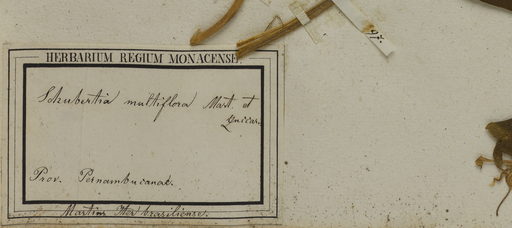 97.
HERBARIUM REGIUM MONACENSE.
Schubertia multiflora Mart. et
Zuccar.
Prov. Pernambucanae.
Martius Iter brasiliense.